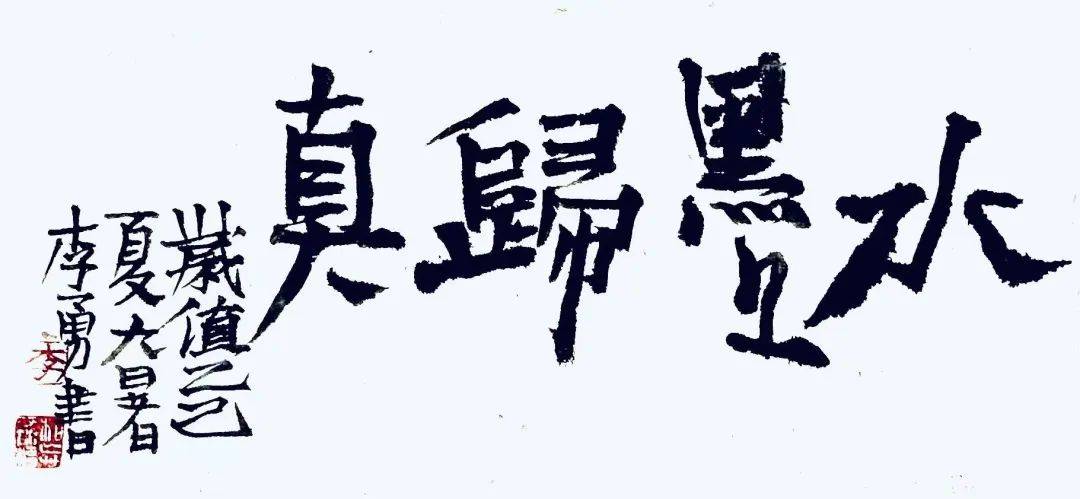 水墨歸真
歲值乙巳
夏大暑
李勇書